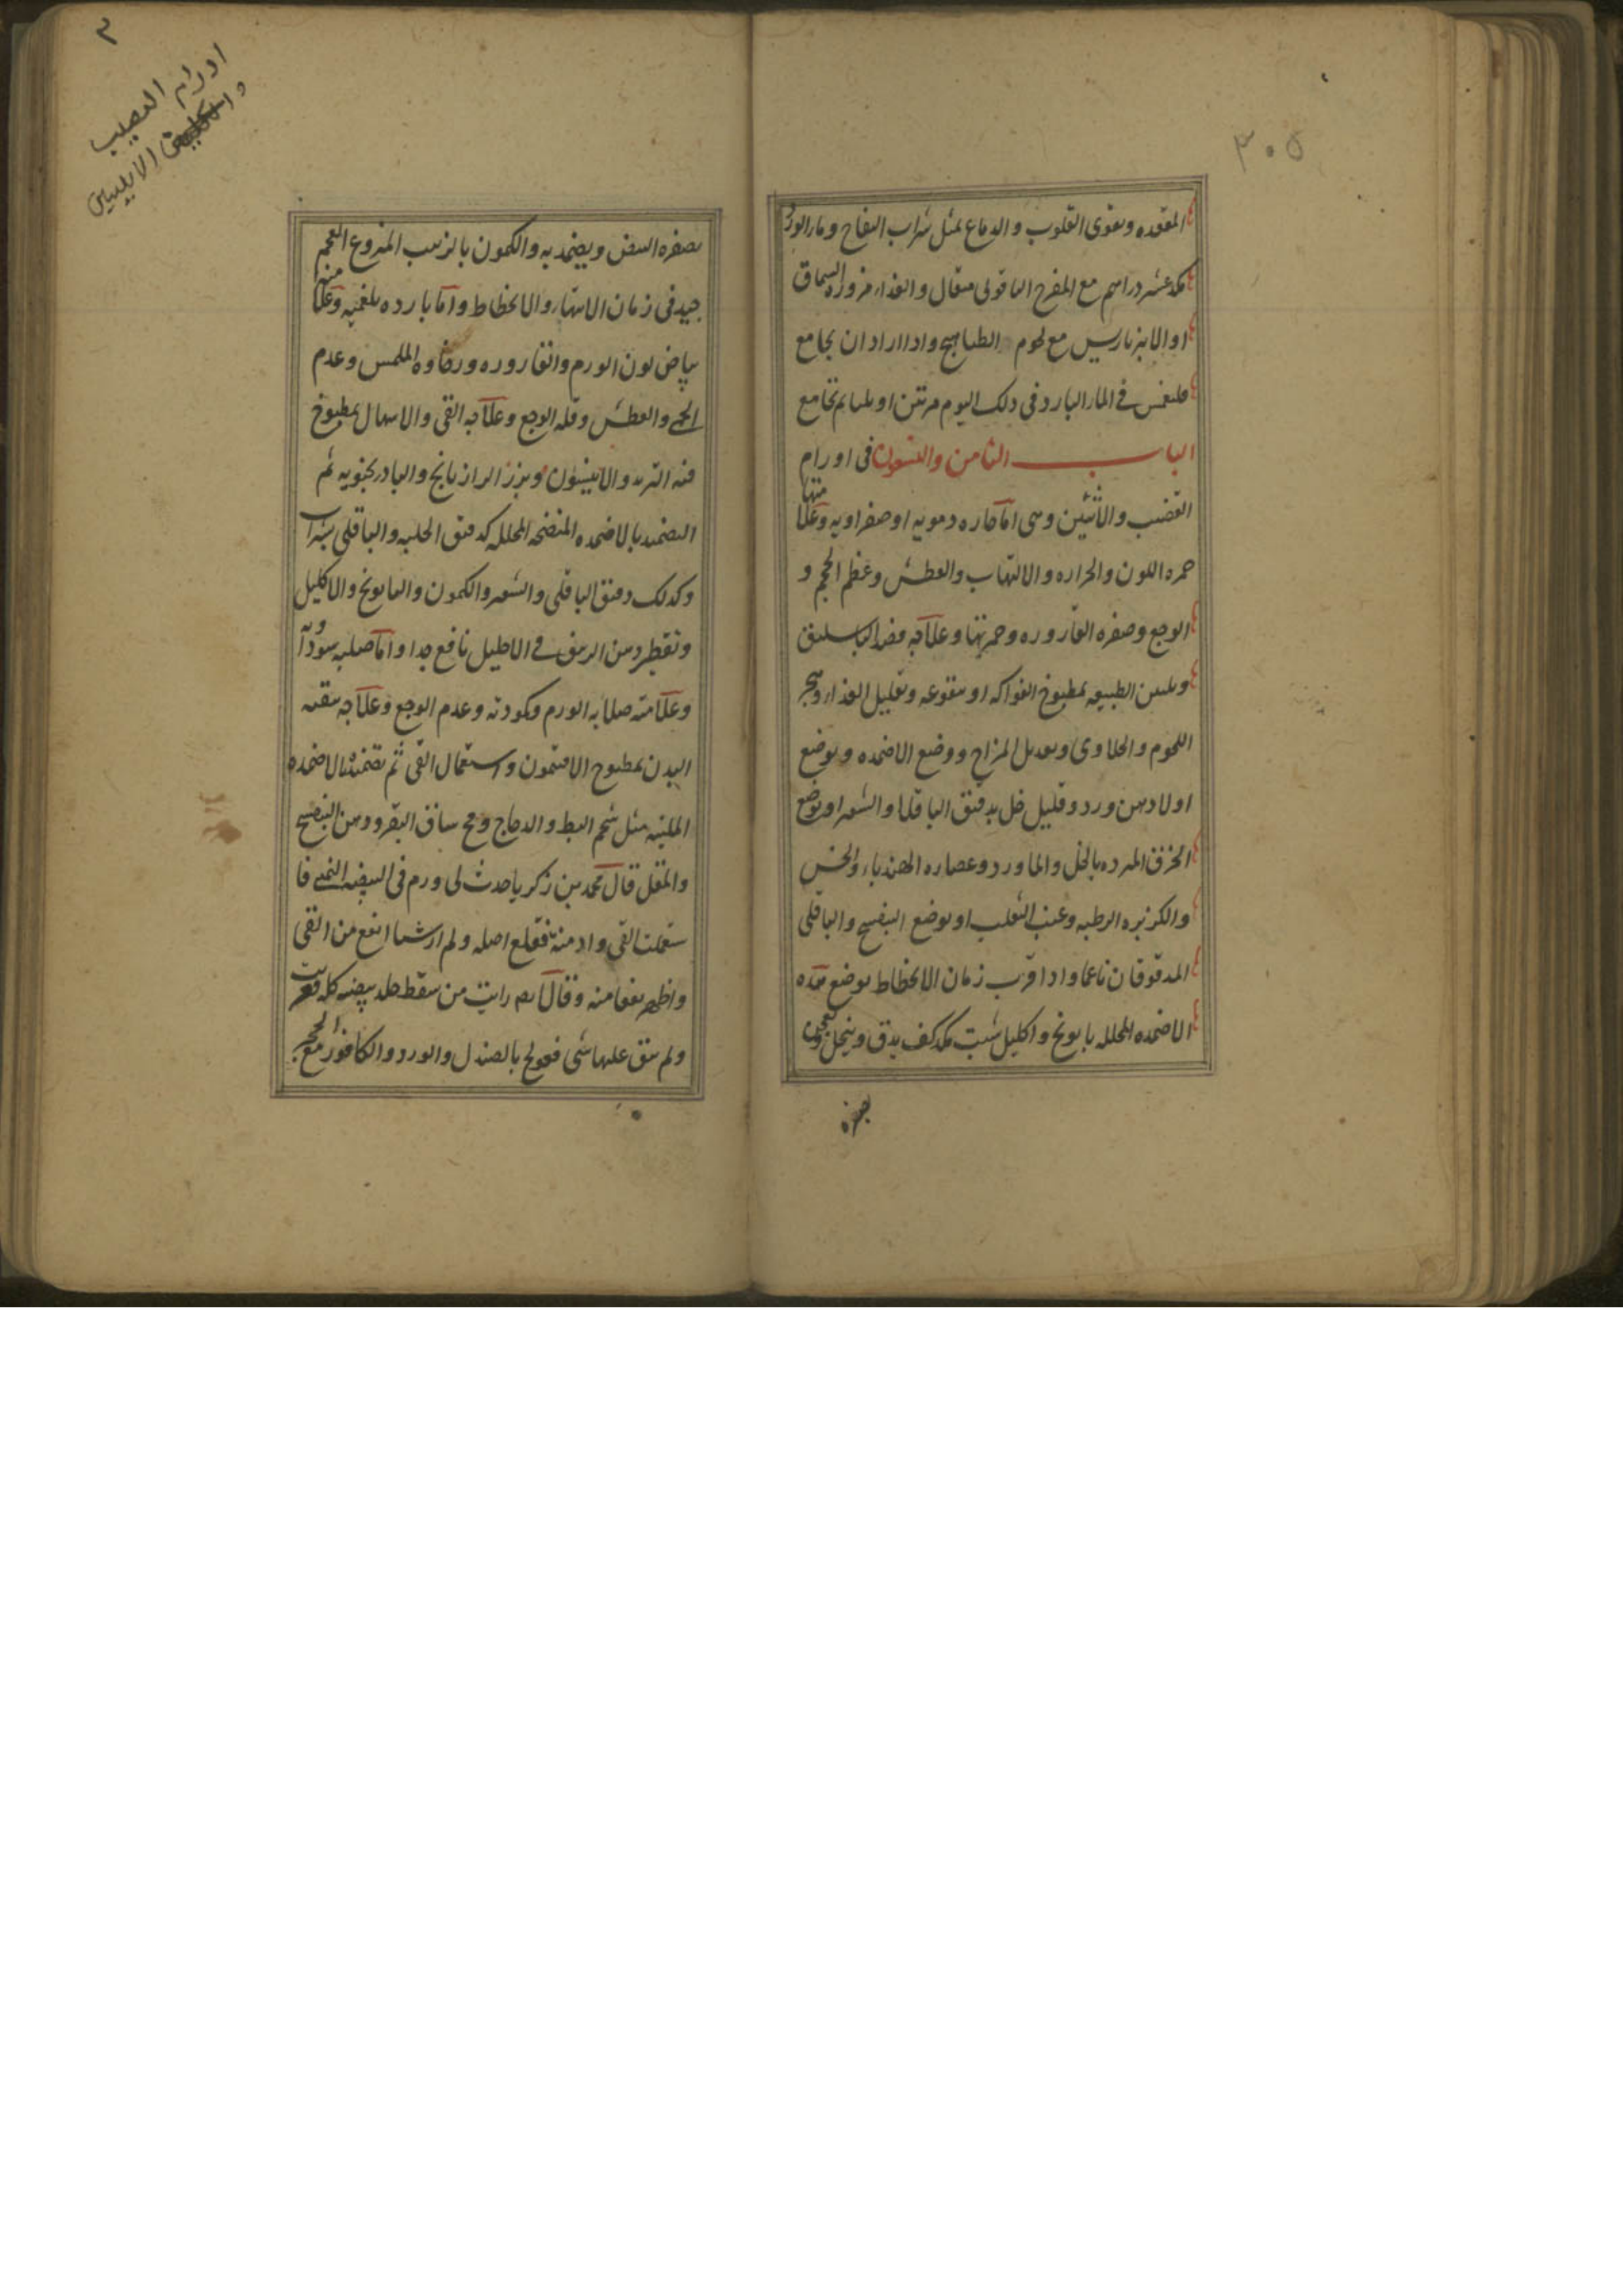 ٣٠٥
المعوده ويقوى القلوب والدماع بمثل شراب التفاح وماء الورد
مكد عشر دراهم مع المفرح الياقوتى مثقال والغذاء مزوره السماق
او الانبرباريس مع لحوم الطياهيج واذا اراد ان يجامع
فلينغمس في الماء البارد في ذلك اليوم مرتين او ثلثا ثم يجامع
الباب الثامن والتسعون فى اورام
القضيب والانثيين وهى اما حاره دمويه او صفراويه وعلامتها
حمره اللون والحراره والالتهاب والعطش وعظم الحجم و
الوجع وصفره القاروره وحمرتها وعلاجه فصد الباسليق
وتليين الطبيعه بمطبوخ الفواكه او بنقوعه وتقليل الغذاء وهجر
اللحوم والحلاوى وتعديل المزاج ووضع الاضمده ويوضع
اولا دهن ورد وقليل خل بدقيق الباقلا والشعير او يوضع
الخرق المبرده بالخل والماورد وعصاره الهندباء والخس
والكزبره الرطبه وعنب الثعلب او يوضع البنفسج والباقلى
المدقوقان ناعما واذا قرب زمان الانحطاط يوضع هذه
الاضمده المحلله بابونج واكليل شبت مكد كف يدق وينخل ويعجن
بصفره
اورام القضيب
و الانثيين
بصفره البيض ويضمد به والكمون بالزبيب المنزوع العجم
جيد فى زمان الانتهاء والانحطاط واما بارده بلغميه وعلامتها
بياض لون الورم والقاروره ورخاوه الملمس وعدم
الحمى والعطش وقله الوجع وعلاجه القى والاسهال بمطبوخ
فيه التربد والانيسون وبزر الرازيانج والبادرنجبويه ثم
التضميد بالاضمده المنضجه المحلله كدقيق الحلبه والباقلى بشراب
وكذلك دقيق الباقلى والشعير والكمون والبابونج والاكليل
وتقطير دهن الزيبق في الاحليل نافع جدا واما صلبه سوداويه
وعلامته صلابه الورم وكمودته وعدم الوجع وعلاجه تنقيه
البدن بمطبوخ الافتيمون واستعمال القى ثم تضميد بالاضمده
الملينه مثل شحم البط والدجاج ومخ ساق البقر ودهن البنفسج
والمقل قال محمد بن زكريا حدث لى ورم فى البيضه اليمنى فا
ستعملت القى وادمنته فقلع اصله ولم ار شيا انفع من القى
واظهر نفعا منه وقال ايضا رايت من سقط جلد بيضه كله
ولم يبق عليها شى فعولج بالصندل والورد والكافور مع